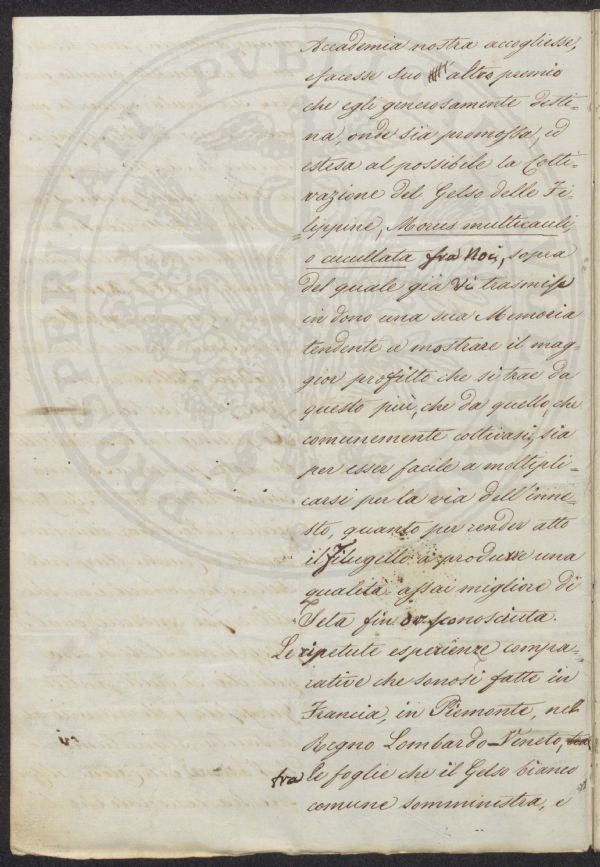 Accademia nostra accogliesse,
e facesse suo altro premio
che egli generosamente desti-
na, onde sia promossa, ed
estesa al possibile la Colti-
vazione del Gelso delle Fi-
lippine, Morus multicauli,
o cucullata fra Noi, sopra
del quale già Vi trasmise
in dono una sua Memoria
tendente a mostrare il mag-
gior profitto che si trae da
questo più, che da quello che
comunemente coltivasi, sia
per esser facile a moltipli-
carsi per la via dell'inne-
sto, quanto per render atto
il Filugello a produrre una
qualità assai migliore di
Seta fin or sconosciuta.
Le ripetute esperienze compa-
rative che sonosi fatte in
Francia, in Piemonte, nel
Regno Lombardo-Veneto,
fra le foglie che il Gelso bianco
comune somministra, e
PROSPERITATI PUBLICAE